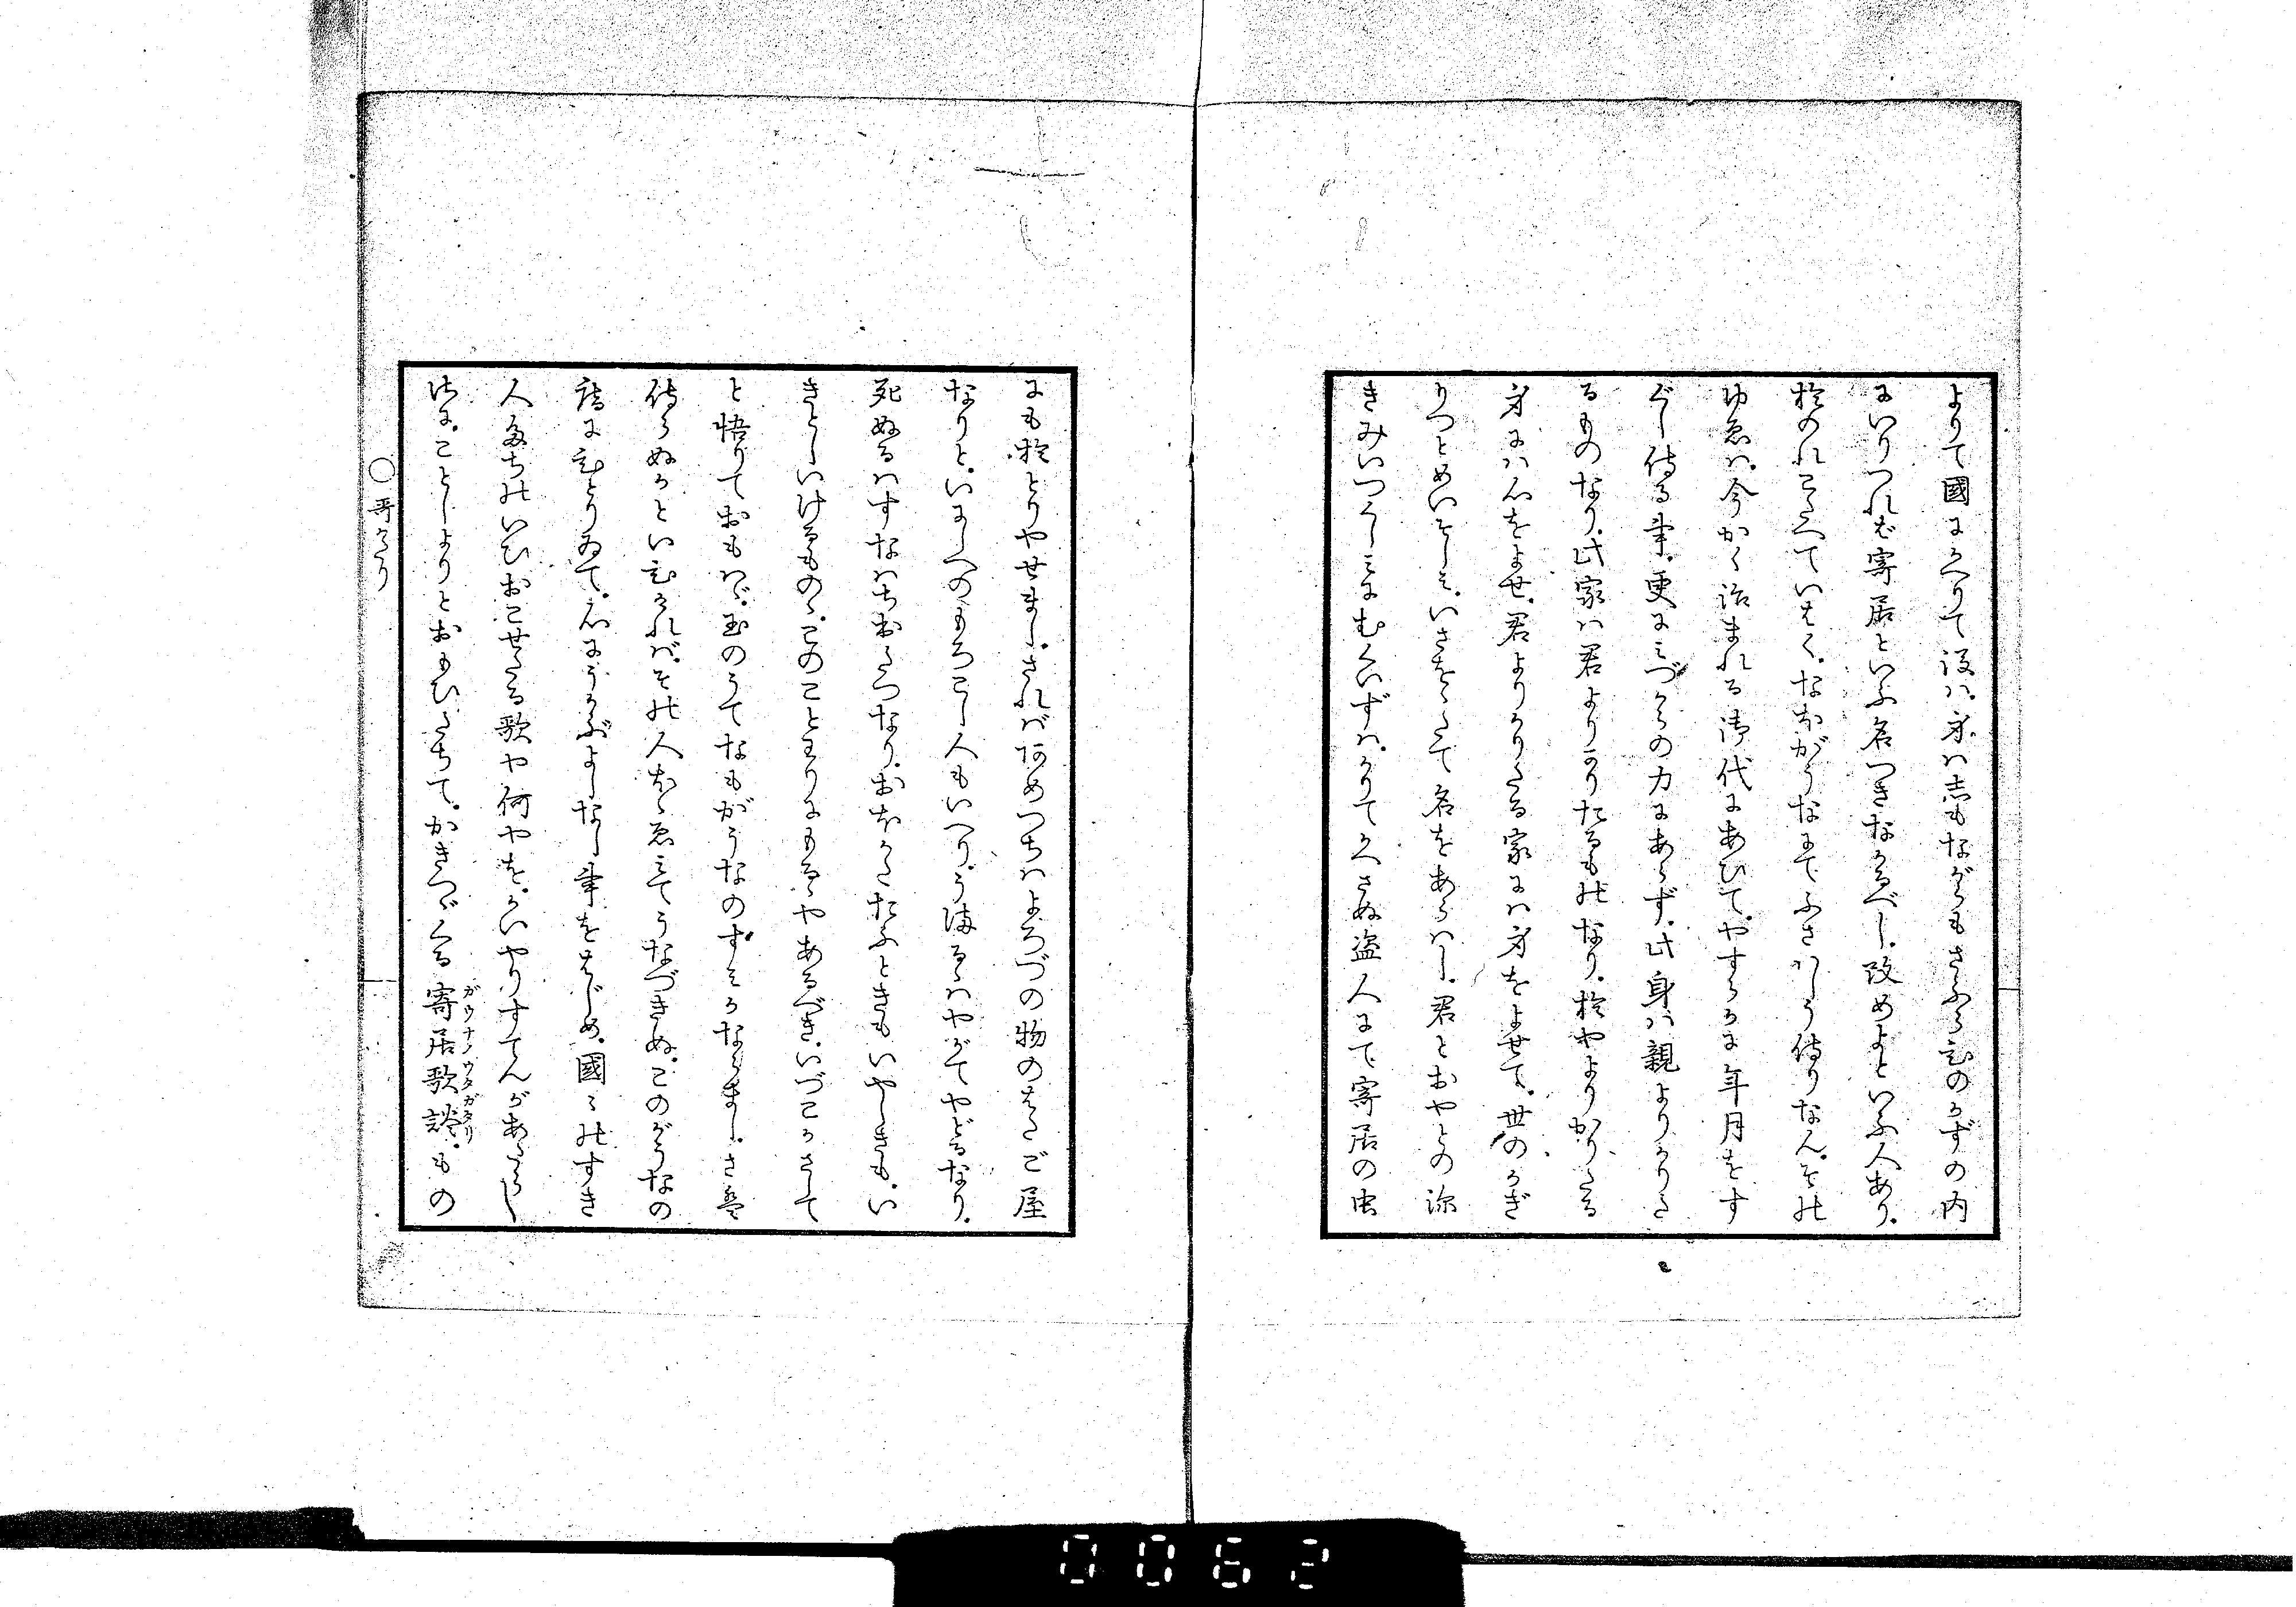 よりて國にかへりて後は、身は志もながらもさふらひのかずの内
にいりつれば寄居といふ名つきなかるべし、改めよといふ人あり、
おのれこたへていはく、なほがうなにてふさはしう侍りなん、その
ゆゑは、今かく治まれる御代にあひて、やすらかに年月をす
ぐし侍る事、更にみづからの力にあらず、此身は親よりかりた
るものなり、此家は君よりかりたるものなり、おやよりかりたる
身には心をよせ、君よりかりたる家には身をよせて、世のかぎ
りつとめいそしみ、いさをたてて名をあらはし、君とおやとの
きみいつくしみにむくいずは、かりてかへさぬ盗人にて寄居の虫
にもおとりやせまし、さればあめつちはよろづの物のはたご屋
なりと、いにしへのもろこし人もいへり、うまるゝはやがてやどるなり、
死ぬるはすなはちおたつなり、おほかたたふときもいやしきも、い
きとしいけるもの、このことわりにもるゝやあるべき、いづこかさして
と悟りておもはゞ、玉のうてなもがうなのすみかならまし、さは
侍らぬかといひければ、その人ほゝゑみてうなづきぬ、このがうなの
窟にひとりゐて、心にうかぶよしなし事をはじめ、國々のすき
人たちのいひおこせたる歌や何やを、かいやりすてんがあたらし
さに、ことしよりとおもひたちて、かきつゞくる寄居歌談、もの
ガウナノウタガタリ
○哥がたり
0062